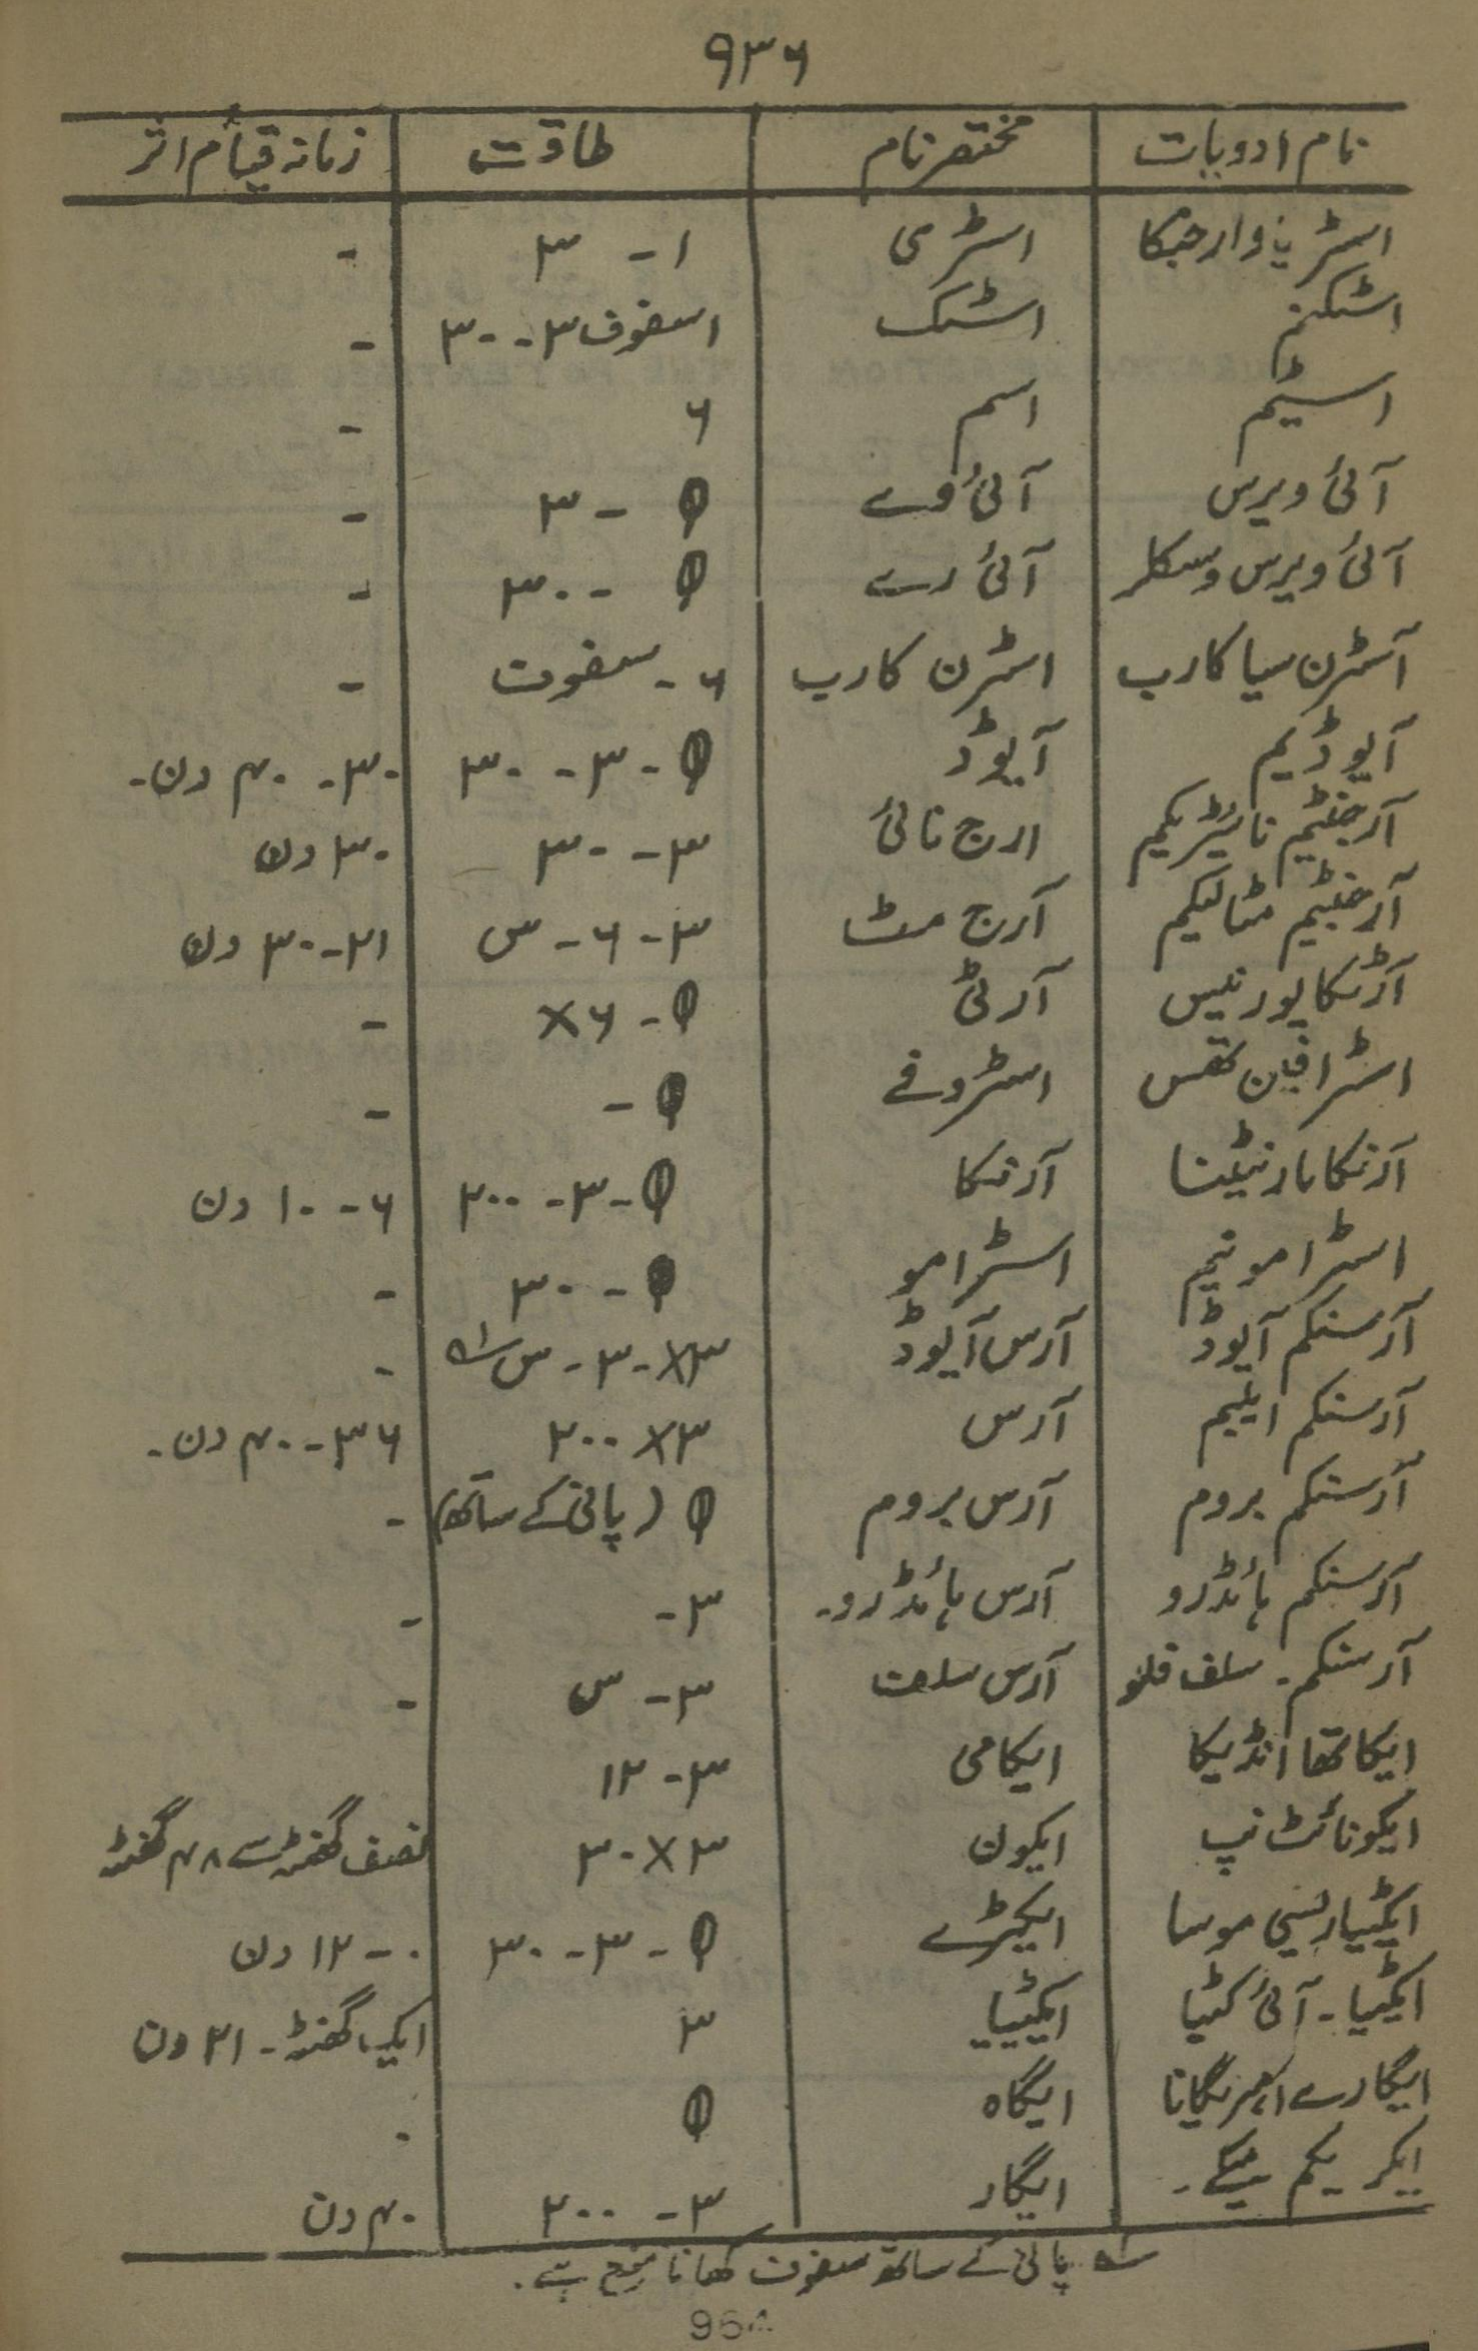 ۹۳۶
نام ادویات | مختصر نام | طاقت | زمانہ قیام اثر
اسٹریا وارجیکا | اسٹری | ۱ - ۳ | -
اسٹکنم | اسٹک | اسفوف ۳ - ۳۰ | -
اسٹیم | اسم | ۶ | -
آئی ویرس | آئی وے | Ø - ۳ | -
آئی ویرس وسکلر | آئی رے | Ø - ۳۰ | -
آسٹرن سیا کارب | اسٹرن کارب | ۶ - سفوف | -
آیوڈیم | آیوڈ | Ø - ۳ - ۳۰ | ۳۰ - ۴۰ دن -
آرجنٹیم نائیٹریکیم | ارج نائی | ۳ - ۳۰ | ۳۰ دن
آرجنٹیم مٹالیکم | آرج مٹ | ۳ - ۶ - س | ۲۱ - ۳۰ دن
آرٹیکا یورنیس | آرٹی | Ø - ۶× | -
اسٹرافین تھس | اسٹروفے | Ø - | -
آرنیکا مارنٹینا | آرنیکا | Ø - ۳ - ۲۰۰ | ۶ - ۱۰ دن
اسٹرامونیم | اسٹرامو | Ø - ۳۰ | -
آرسنکم آیوڈ | آرس آیوڈ | ۳× - ۳ - س لہ | -
آرسنکم ایلبم | آرس | ۳× ۲۰۰ | ۳۶ - ۴۰ دن -
آرسنکم بروم | آرس بروم | Ø (پانی کے ساتھ) | -
آرسنکم ہائڈرو | آرس ہائڈرو - | ۳ - | -
آرسنکم - سلف فلو | آرس سلف | ۳ - س | -
ایکا تھا انڈیکا | ایکامی | ۳ - ۱۲
ایکونائٹ نپ | ایکون | ۳× ۳۰ | نصف گھنٹہ سے ۴۸ گھنٹہ
ایکٹیاریسی موسا | ایکٹرے | Ø - ۳ - ۳۰ | ۰ - ۱۲ دن
ایکٹیا - آئی کٹیا | ایکٹیا | ۳ | ایک گھنٹہ - ۲۱ دن
ایگارے امریگانا | ایگاہ | Ø | -
ایگریکم | ایگار | ۳ - ۲۰۰ | ۴۰ دن
لہ پانی کے ساتھ سفوف کھانا منع ہے -